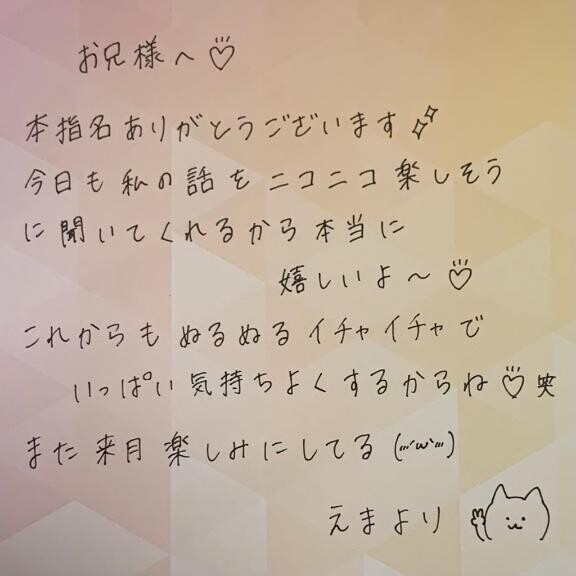 お兄様へ♡
本指名ありがとうございます✨
今日も私の話をニコニコ楽しそう
に聞いてくれるから本当に
嬉しいよ〜♡
これからもぬるぬるイチャイチャで
いっぱい気持ちよくするからね♡笑
また来月楽しみにしてる(,,,´ω`,,,)
えまより